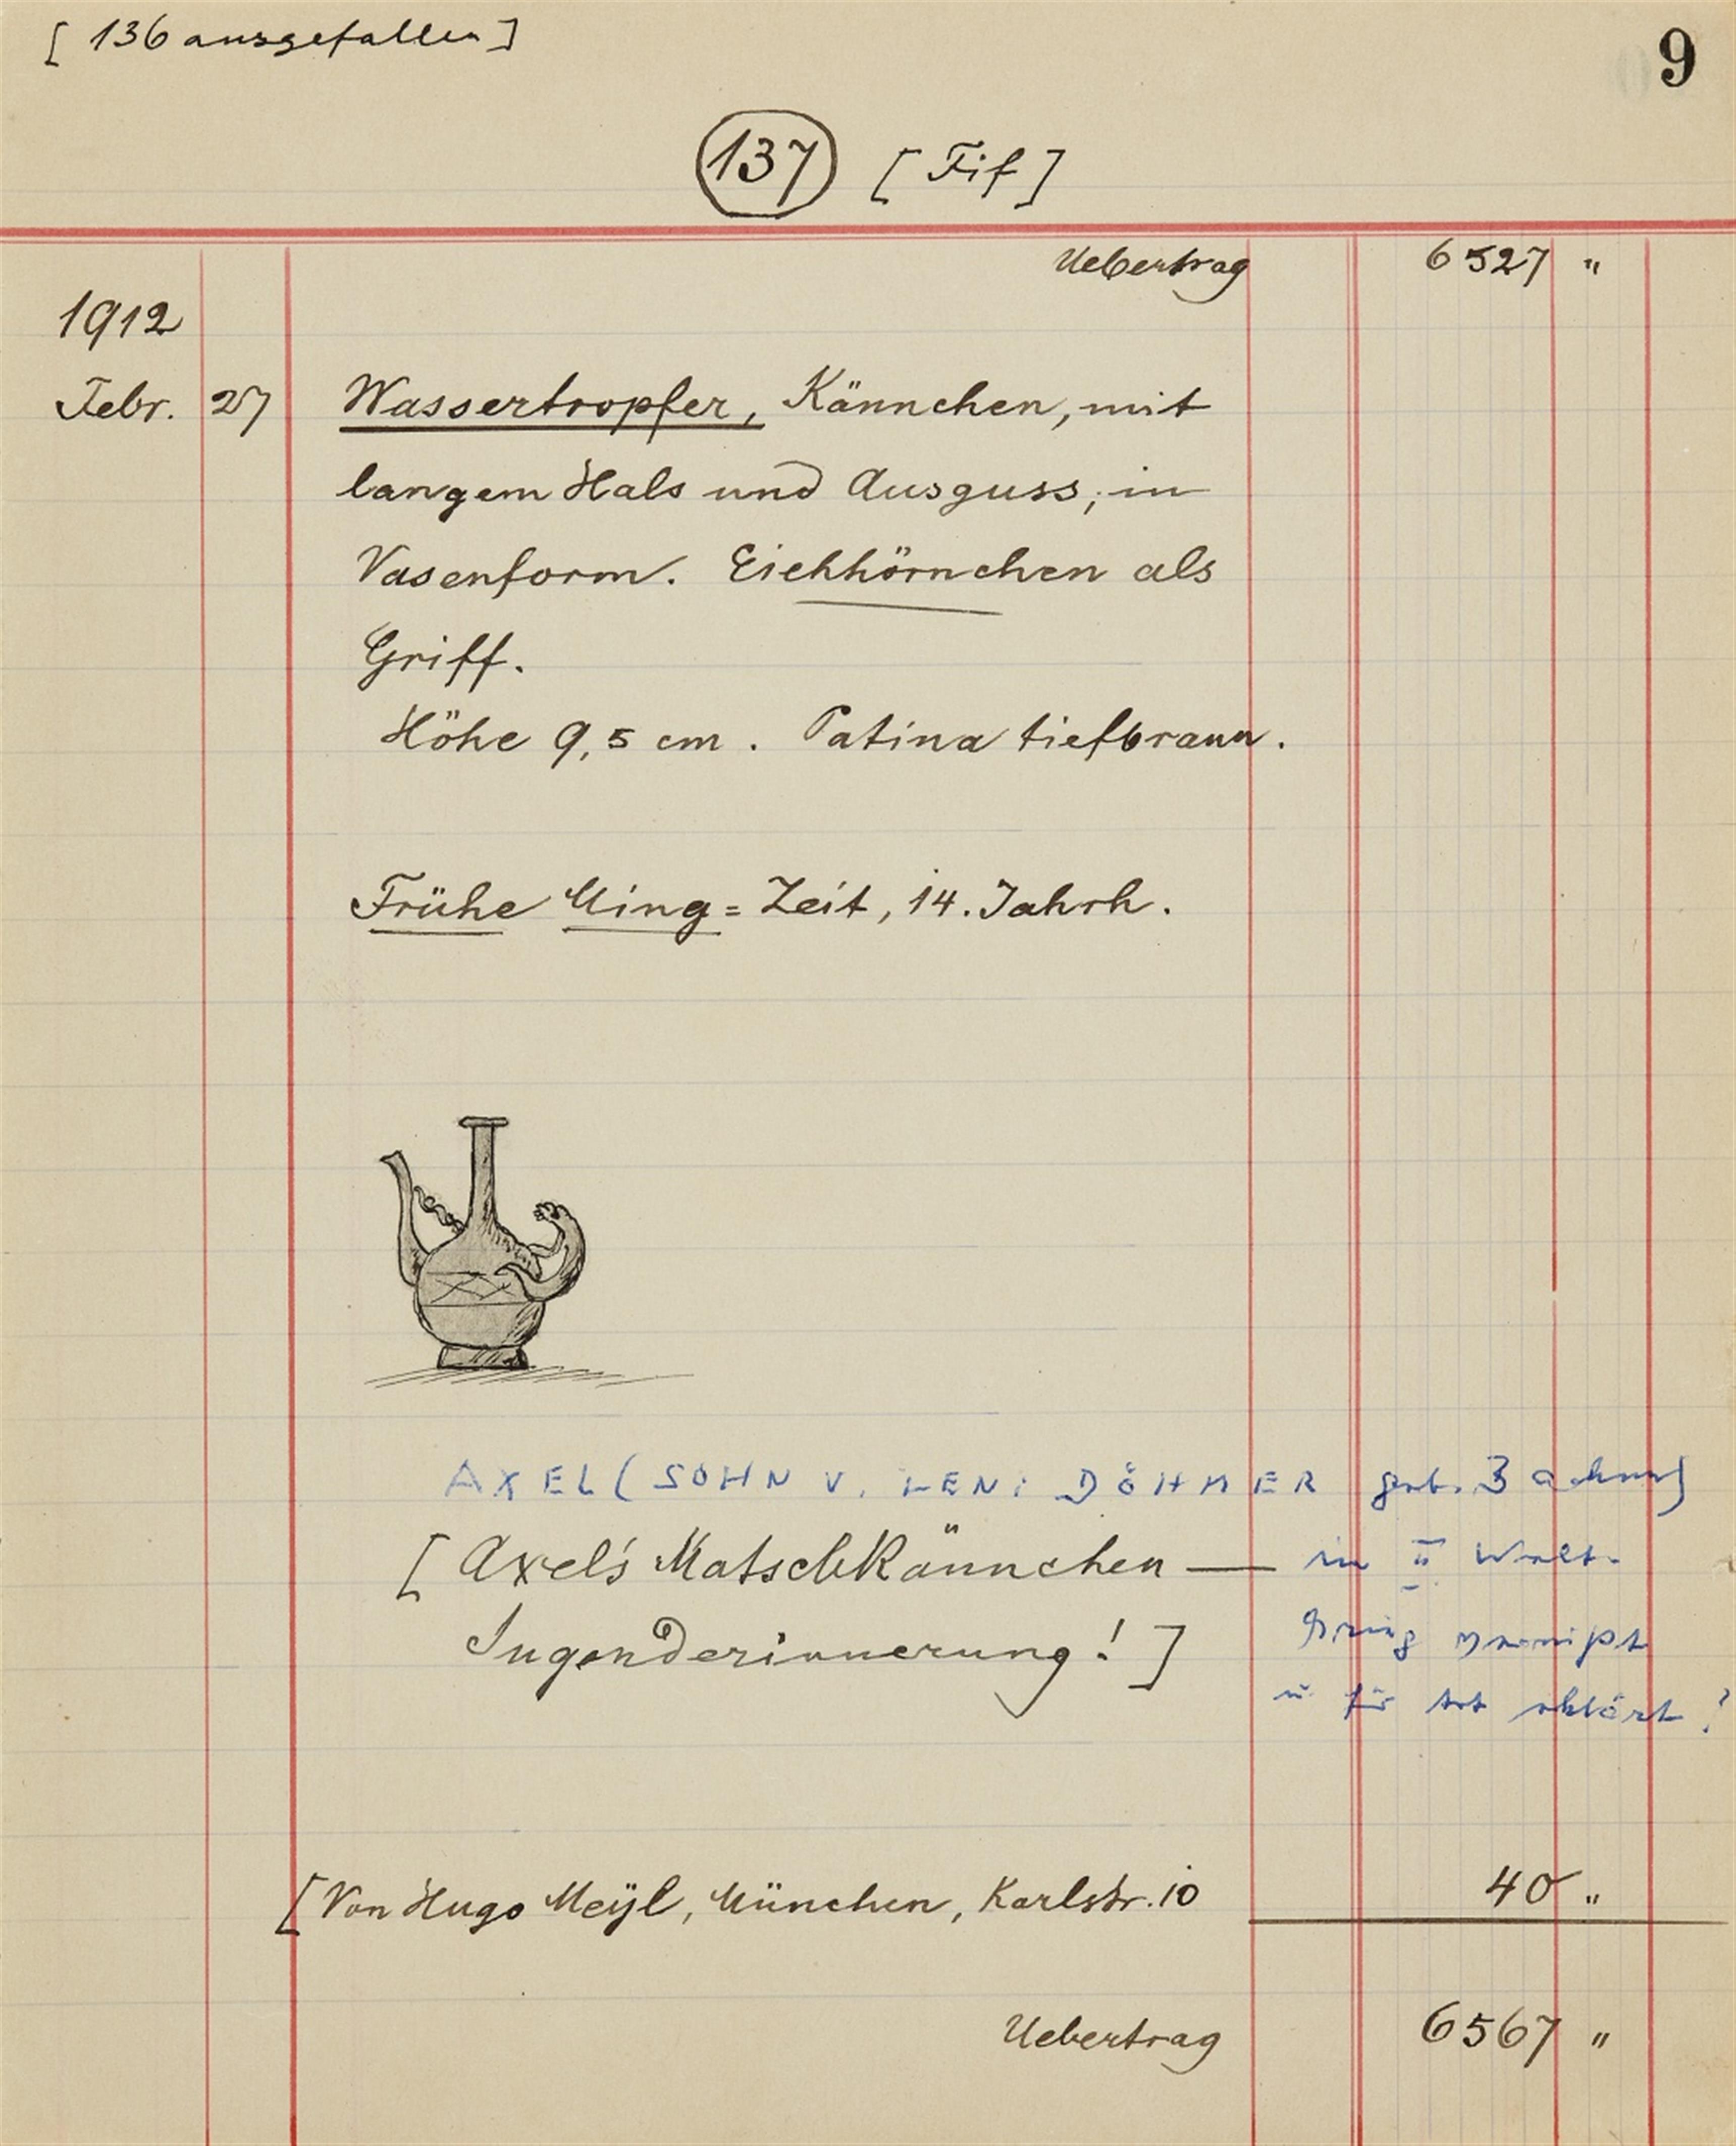 [ 136 ausgefallen ]
9
137 [ Fif ]
Uebertrag 6527 "
1912
Febr. 27 Wassertropfer, Kännchen, mit
langem Hals und Ausguss, in
Vasenform. Eichhörnchen als
Griff.
Höhe 9,5 cm. Patina tiefbraun.
Frühe Ming= Zeit, 14. Jahrh.
AXEL ( SOHN V. LENI DÖHMER geb.
[ Axel's Matschkännchen — im II Welt-
Jugenderinnerung! ] krieg vermisst
u. für tot erklärt ?
[ Von Hugo Meÿl, München, Karlstr. 10 40 "
Uebertrag 6567 "